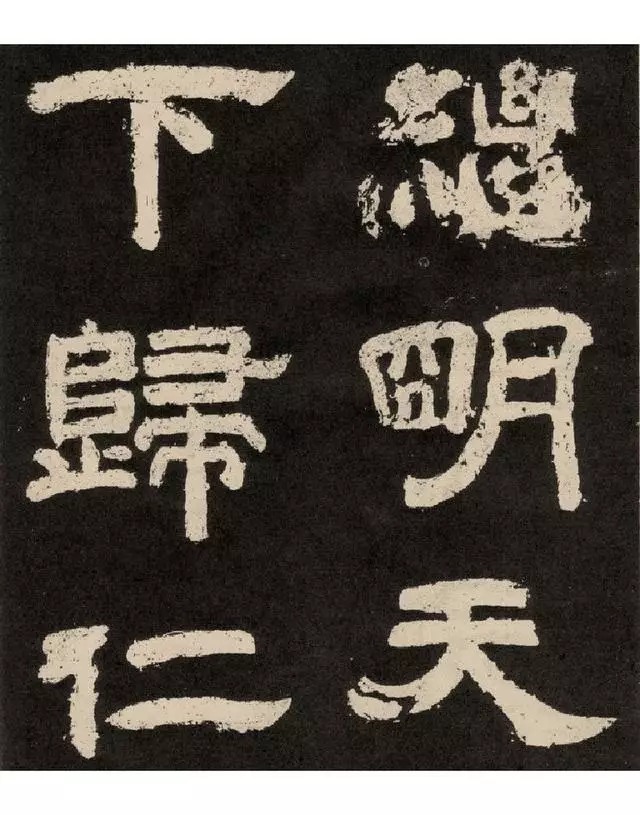 繼明天
下歸仁